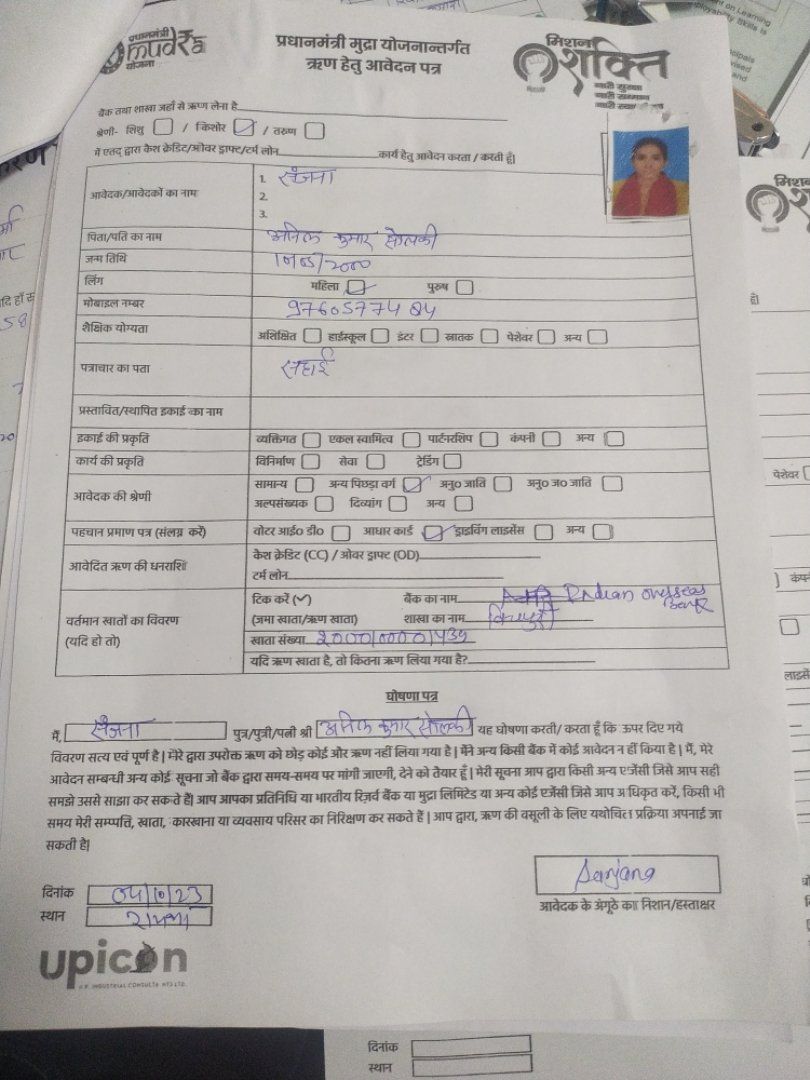 प्रधानमंत्री
mudra
योजना
प्रधानमंत्री मुद्रा योजनान्तर्गत
ऋण हेतु आवेदन पत्र
मिशन
शक्ति
नारी सुरक्षा
नारी सम्मान
बैंक तथा शाखा जहाँ से ऋण लेना है
श्रेणी- शिशु / किशोर ✓ / तरुण
में एतद् द्वारा कैश क्रेडिट/ओवर ड्राफ्ट/टर्म लोन कार्य हेतु आवेदन करता / करती हूँ।
आवेदक/आवेदकों का नाम
1. संजना
2.
3.
पिता/पति का नाम अनिल कुमार सोलंकी
जन्म तिथि
लिंग महिला ✓ पुरुष
मोबाइल नम्बर
शैक्षिक योग्यता अशिक्षित हाईस्कूल इंटर स्नातक पेशेवर अन्य
पत्राचार का पता
प्रस्तावित/स्थापित इकाई का नाम
इकाई की प्रकृति व्यक्तिगत एकल स्वामित्व पार्टनरशिप कंपनी अन्य
कार्य की प्रकृति विनिर्माण सेवा ट्रेडिंग
आवेदक की श्रेणी सामान्य अन्य पिछड़ा वर्ग ✓ अनु० जाति अनु० ज० जाति
अल्पसंख्यक दिव्यांग अन्य
पहचान प्रमाण पत्र (संलग्न करें) वोटर आई० डी० आधार कार्ड ✓ ड्राइविंग लाइसेंस अन्य
आवेदित ऋण की धनराशि कैश क्रेडिट (CC) / ओवर ड्राफ्ट (OD)
टर्म लोन
वर्तमान खातों का विवरण
(यदि हो तो)
टिक करें (✓) बैंक का नाम Indian overseas
Bank
(जमा खाता/ऋण खाता) शाखा का नाम
खाता संख्या
यदि ऋण खाता है, तो कितना ऋण लिया गया है?
घोषणा पत्र
मैं, संजना पुत्र/पुत्री/पत्नी श्री अनिल कुमार सोलंकी यह घोषणा करती/ करता हूँ कि ऊपर दिए गये
विवरण सत्य एवं पूर्ण है | मेरे द्वारा उपरोक्त ऋण को छोड़ कोई और ऋण नहीं लिया गया है | मैंने अन्य किसी बैंक में कोई आवेदन न हीं किया है | मैं, मेरे
आवेदन सम्बन्धी अन्य कोई सूचना जो बैंक द्वारा समय-समय पर मांगी जाएगी, देने को तैयार हूँ | मेरी सूचना आप द्वारा किसी अन्य एजेंसी जिसे आप सही
समझे उससे साझा कर सकते हैं| आप आपका प्रतिनिधि या भारतीय रिज़र्व बैंक या मुद्रा लिमिटेड या अन्य कोई एजेंसी जिसे आप अधिकृत करें, किसी भी
समय मेरी सम्पत्ति, खाता, कारखाना या व्यवसाय परिसर का निरिक्षण कर सकते हैं | आप द्वारा, ऋण की वसूली के लिए यथोचित प्रक्रिया अपनाई जा
सकती है|
Sanjana
आवेदक के अंगूठे का निशान/हस्ताक्षर
दिनांक 04/10/23
स्थान
upicon
दिनांक
स्थान